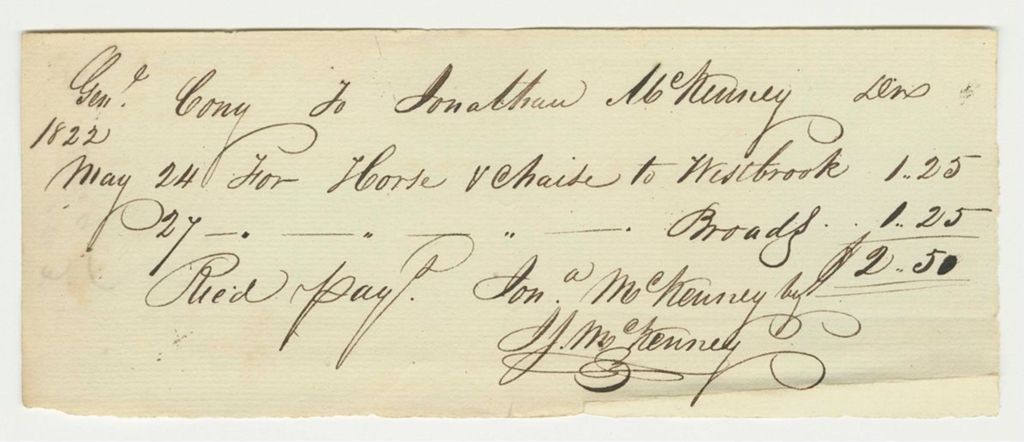 Genl. Cony To Jonathan McKenney Dr
1822
May 24 For Horse & Chaise to Westbrook 1..25
27 — " — " — " — " Broads .. 1..25
$2..50
Rec'd payt. Jona. McKenney by
McKenney